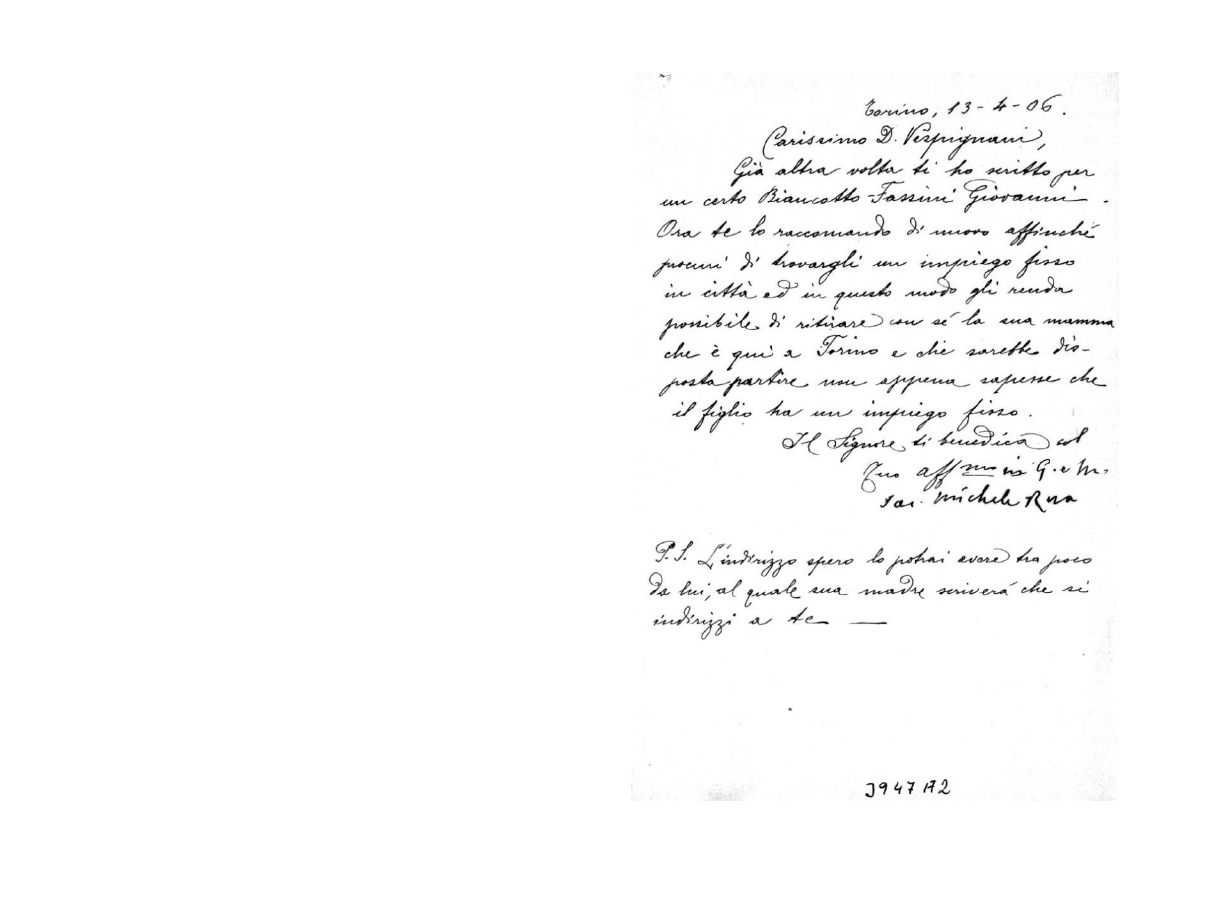 Torino, 13-4-06.
Carissimo D. Vespignani,
Già altra volta ti ho scritto per
un certo Biancotto-Fassini Giovanni.
Ora te lo raccomando di nuovo affinché
procuri di trovargli un impiego fisso
in città ed in questo modo gli renda
possibile di ritirare con sé la sua mamma
che è qui a Torino e che sarebbe dis-
posta partire non appena sapesse che
il figlio ha un impiego fisso.
Il Signore ti benedica col
Tuo affmo in G. e M.
Sac. Michele Rua
P.S. L'indirizzo spero lo potrai avere tra poco
da lui, al quale sua madre scriverá che si
indirizzi a te —
3947 A2